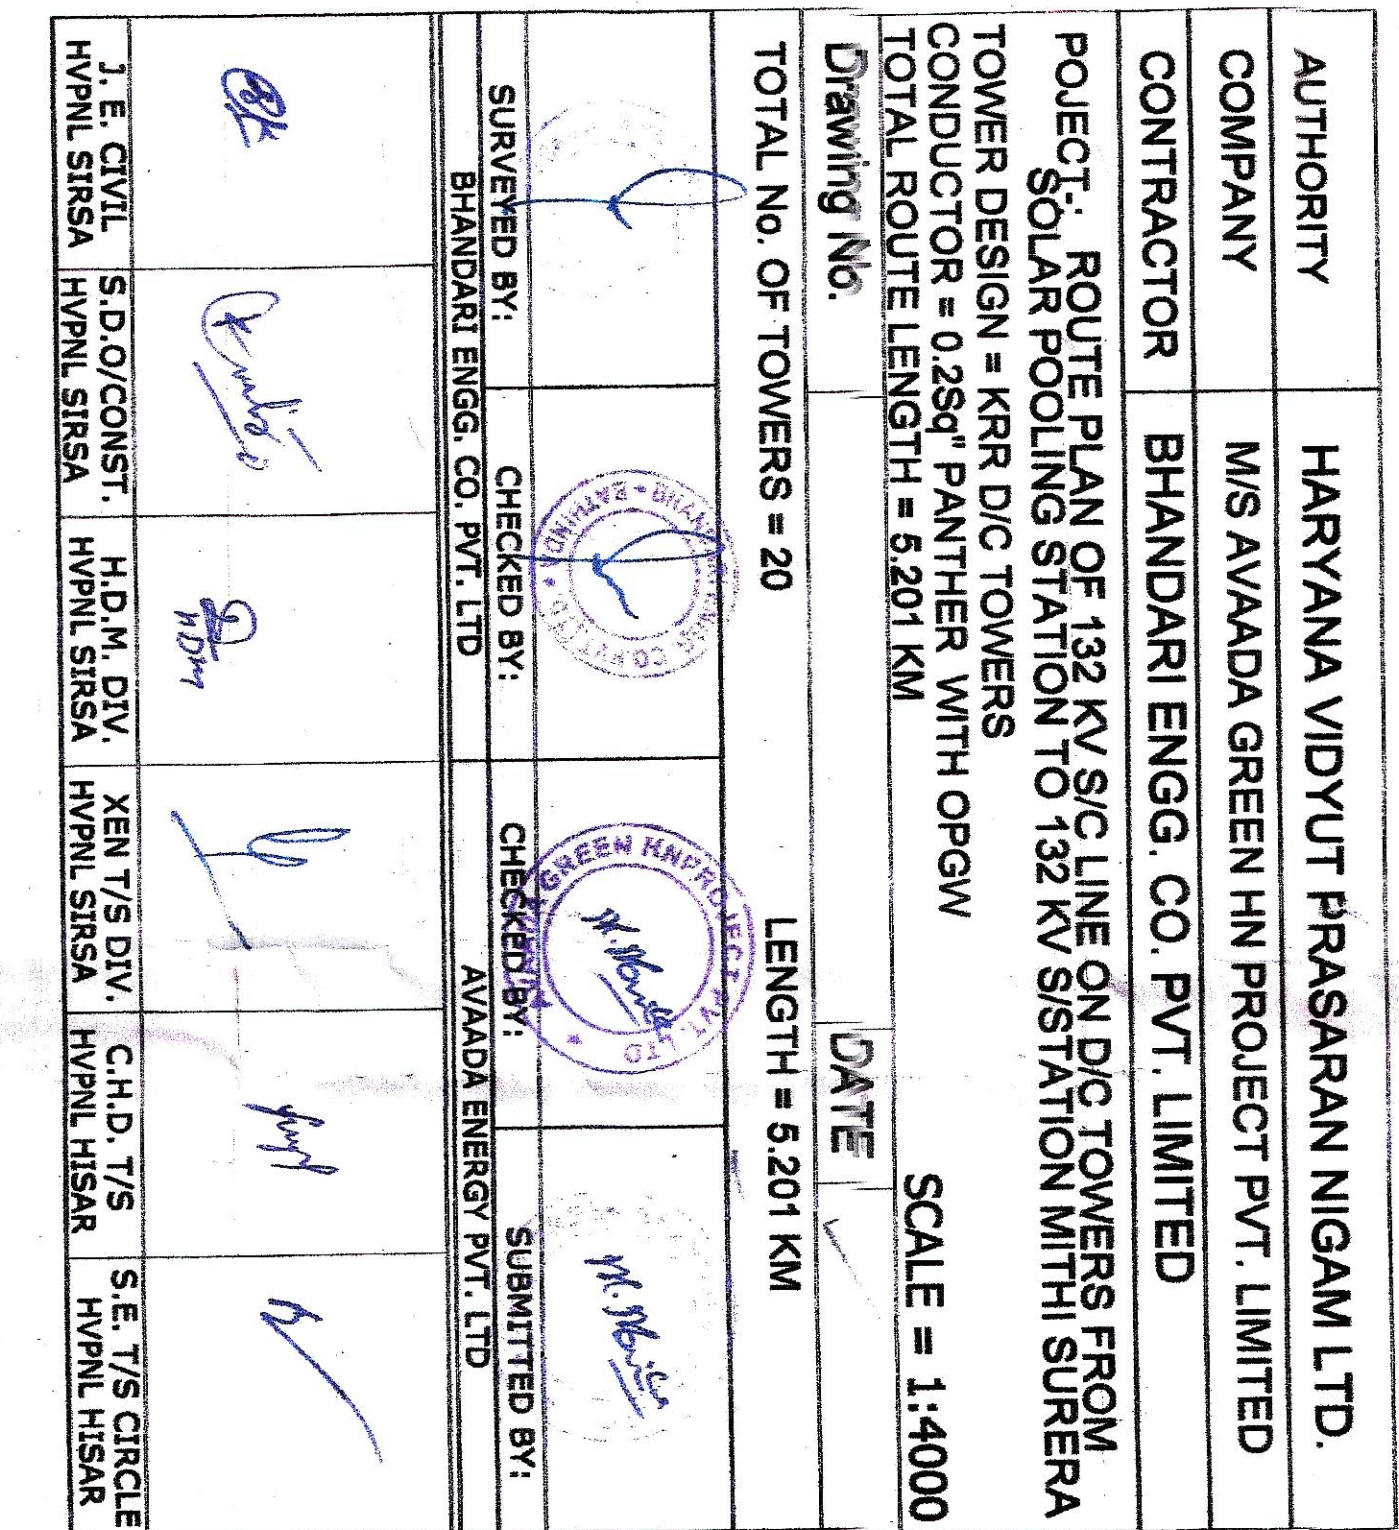 AUTHORITY HARYANA VIDYUT PRASARAN NIGAM LTD.
COMPANY M/S AVAADA GREEN HN PROJECT PVT. LIMITED
CONTRACTOR BHANDARI ENGG. CO. PVT. LIMITED
POJECT.: ROUTE PLAN OF 132 KV S/C LINE ON D/C TOWERS FROM
SOLAR POOLING STATION TO 132 KV S/STATION MITHI SURERA
TOWER DESIGN = KRR D/C TOWERS
CONDUCTOR = 0.2Sq" PANTHER WITH OPGW
TOTAL ROUTE LENGTH = 5.201 KM SCALE = 1:4000
Drawing No. DATE
TOTAL No. OF TOWERS = 20 LENGTH = 5.201 KM
GREEN HN PROJECT PVT. LTD
SURVEYED BY: CHECKED BY: CHECKED BY: SUBMITTED BY:
BHANDARI ENGG. CO. PVT. LTD AVAADA ENERGY PVT. LTD
J. E. CIVIL S.D.O/CONST. H.D.M. DIV. XEN T/S DIV. C.H.D. T/S S.E. T/S CIRCLE
HVPNL SIRSA HVPNL SIRSA HVPNL SIRSA HVPNL SIRSA HVPNL HISAR HVPNL HISAR